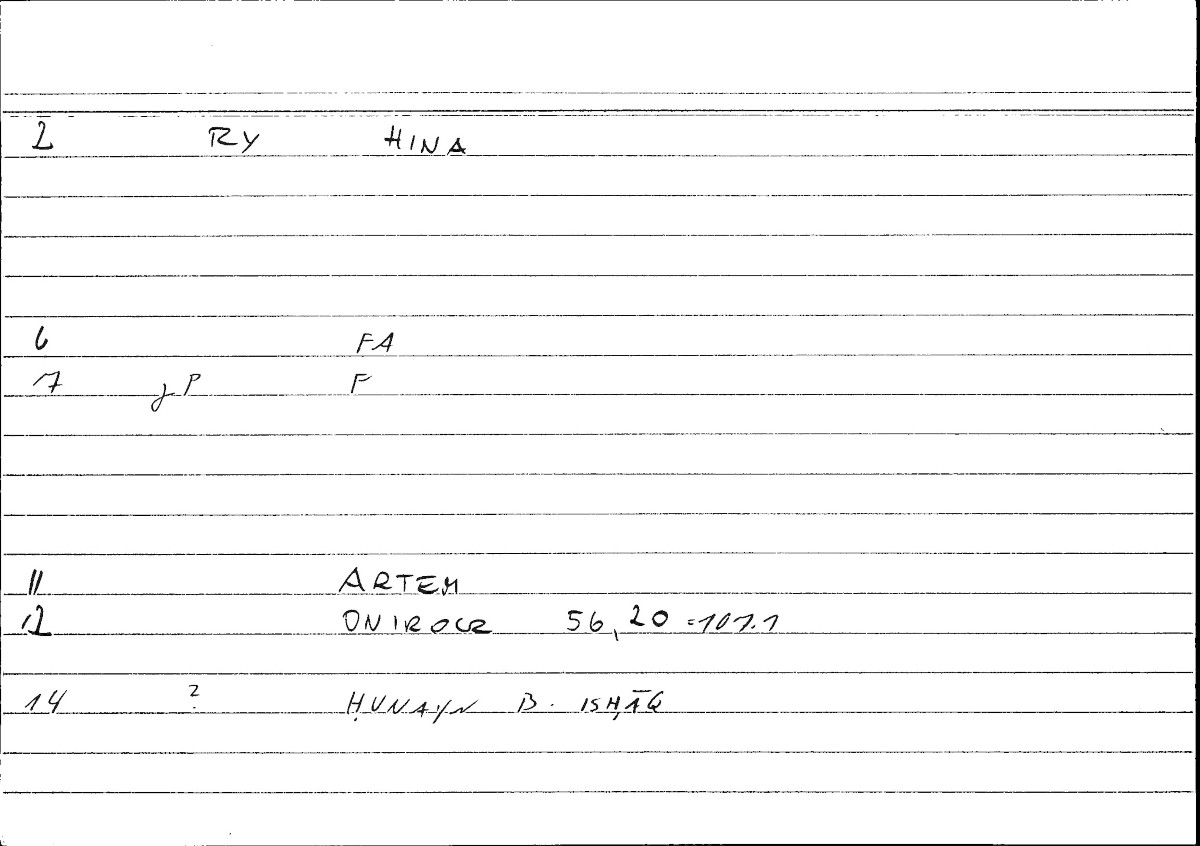 2 RY HINA
6 FA
7 γP F
11 ARTEM
12 ONIROCR 56,20 =107.1
14 ? ḤUNAYN B. ISḤĀQ